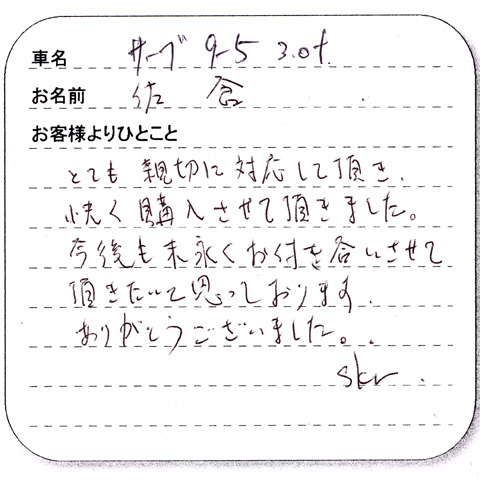 車名 サーブ 9-5 3.0t
お名前 佐倉
お客様よりひとこと
とても親切に対応して頂き、
快く購入させて頂きました。
今後も末永くお付き合いさせて
頂きたいと思っております。
ありがとうございました。
skr.